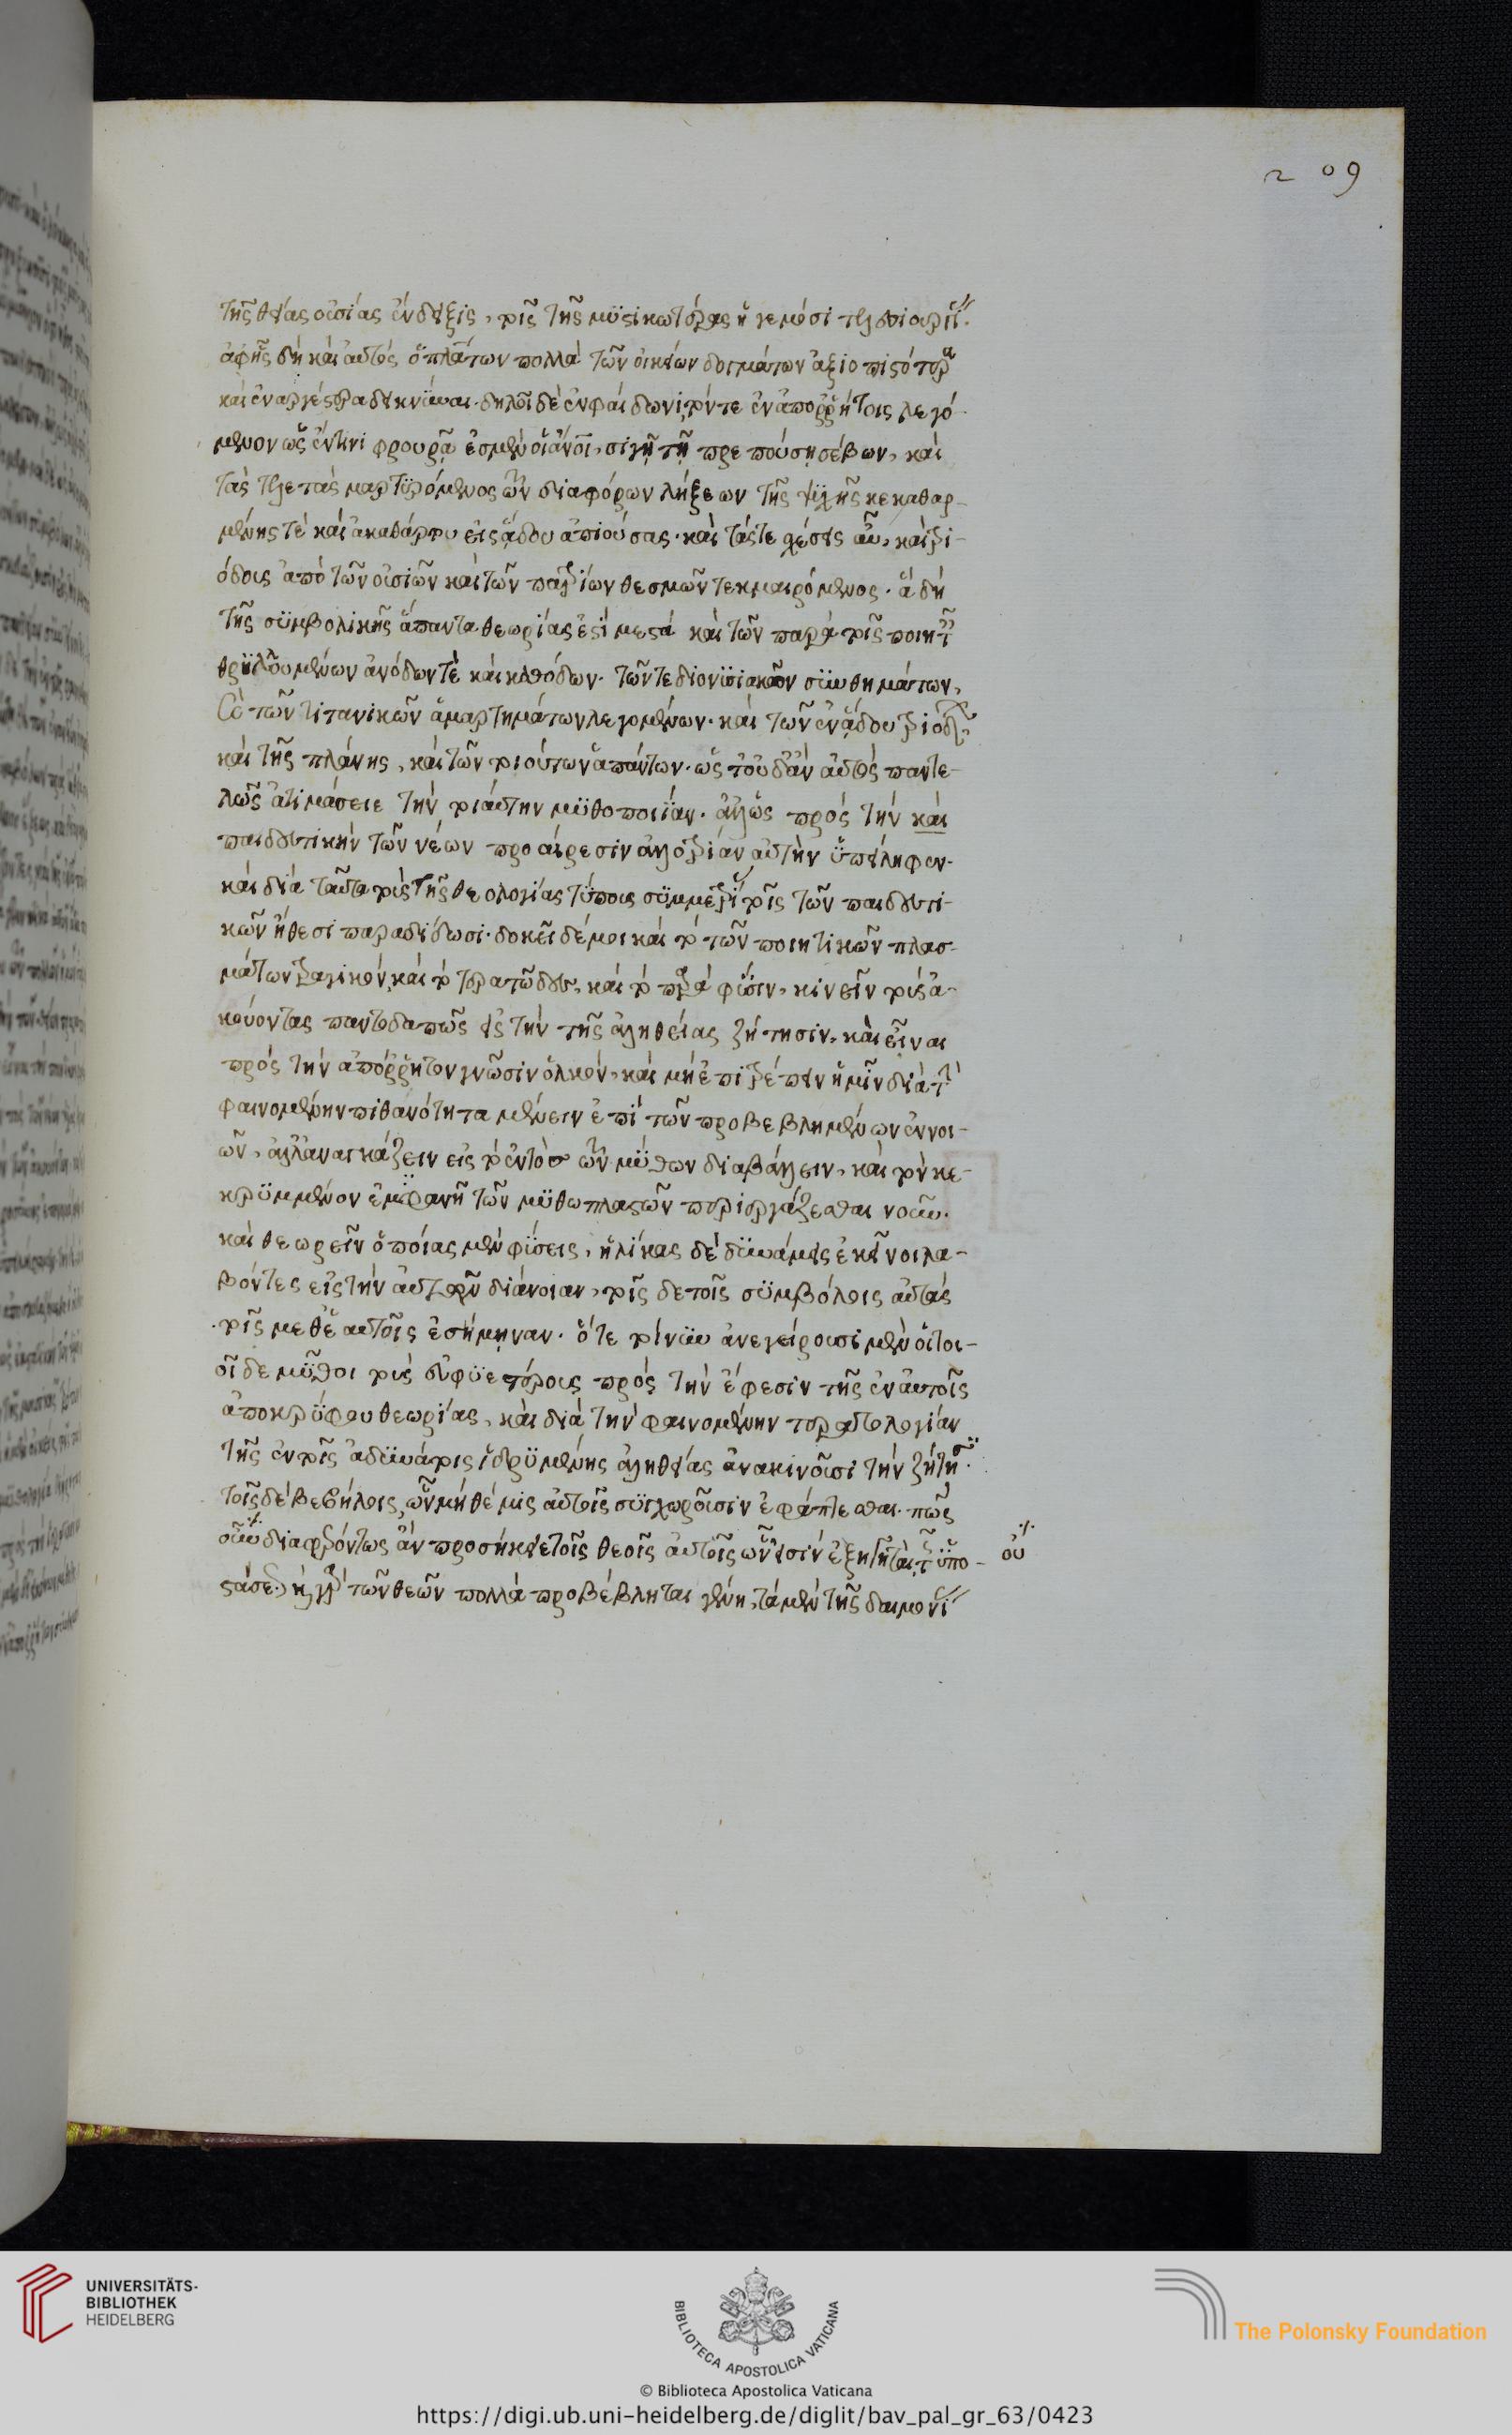 209
τῆς θείας οὐσίας ἔνδειξις, τοῖς τῆς μυστικωτέρας ἡγεμόσι τελεσιουργί.
ἀφῆς δὴ καὶ αὐτὸς ὁ πλάτων πολλὰ τῶν οἰκείων δογμάτων ἀξιοπιστότερα
καὶ ἐναργέστερα δεικνύναι. δηλοῖ δὲ ἐν φαίδωνι τόν τε ἐν ἀπορρήτοις λεγό-
μενον ὡς ἔν τινι φρουρᾷ ἐσμὲν οἱ ἄνοι, σιγῇ τῇ πρεπούσῃ σέβων, καὶ
τὰς τελετὰς μαρτυρόμενος τῶν διαφόρων λήξεων τῆς ψυχῆς κεκαθαρ-
μένης τὲ καὶ ἀκαθάρτου εἰς ἅδου ἀπιούσας. καὶ τάς τε σχέσεις αὖ, καὶ τρι-
όδοις ἀπὸ τῶν οὐσιῶν καὶ τῶν πατρίων θεσμῶν τεκμαιρόμενος. ἃ δὴ
τῆς συμβολικῆς ἅπαντα θεωρίας ἐστὶ μεστὰ καὶ τῶν παρὰ τοῖς ποιητ
θρυλουμένων ἀνόδων τὲ καὶ καθόδων. τῶν τε διονυσιακῶν συνθημάτων,
καὶ τῶν τιτανικῶν ἁμαρτημάτων λεγομένων. καὶ τῶν ἐν ἅδου τριόδων,
καὶ τῆς πλάνης, καὶ τῶν τοιούτων ἁπάντων. ὥστ' οὐδ' ἂν αὐτὸς παντε-
λῶς ἀτιμάσειε τὴν τοιαύτην μυθοποιίαν. ἀλλ' ὡς πρὸς τὴν καὶ
παιδευτικὴν τῶν νέων προαίρεσιν ἀλλοτρίαν αὐτὴν ὑπείληφεν.
καὶ διὰ ταῦτα τοὺς τῆς θεολογίας τύπους συμμέτρους τοῖς τῶν παιδευτι-
κῶν ἤθεσι παραδίδωσι. δοκεῖ δέ μοι καὶ τὸ τῶν ποιητικῶν πλασ-
μάτων τραγικὸν καὶ τὸ τερατῶδες, καὶ τὸ παρὰ φύσιν, κινεῖν τοὺς ἀ-
κούοντας παντοδαπῶς εἰς τὴν τῆς ἀληθείας ζήτησιν. καὶ εἶναι
πρὸς τὴν ἀπόρρητον γνῶσιν ὁλκὸν, καὶ μὴ ἐπιτρέπειν ἡμῖν διὰ τ
φαινομένην πιθανότητα μένειν ἐπὶ τῶν προβεβλημένων ἐννοι-
ῶν, ἀλλ' ἀναγκάζειν εἰς τὸ ἐντὸς τῶν μύθων διαβάλλειν, καὶ τὸν κε-
κρυμμένον ἐμφανῆ τῶν μυθοπλαστῶν περιεργάζεσθαι νοῦν.
καὶ θεωρεῖν ὁποίας μὲν φύσεις, ἡλίκας δὲ δυνάμεις ἐκεῖνοι λα-
βόντες εἰς τὴν αὐτῶν διάνοιαν, τοῖς δε τοῖς συμβόλοις αὐτὰς
τοῖς μεθ' ἑαυτοῖς ἐσήμηναν. ὅτε τοίνυν ἀνεγείρουσι μὲν οἱ τοι-
οῖδε μῦθοι τοὺς εὐφυεστέρους πρὸς τὴν ἔφεσιν τῆς ἐν αὐτοῖς
ἀποκρύφου θεωρίας, καὶ διὰ τὴν φαινομένην τερατολογίαν
τῆς ἐν τοῖς ἀδυνάτοις ἱδρυμένης ἀληθείας ἀνακινοῦσι τὴν ζήτησ.
τοῖς δὲ βεβήλοις, ὧν μὴ θέμις αὐτοῖς συγχωροῦσιν ἐφάπτεσθαι. πῶς
οὖν διαφερόντως ἂν προσήκοιε τοῖς θεοῖς αὐτοῖς ὧν εἰσὶν ἐξηγηταὶ τ ὑπο- οὐ
στάσε. καὶ γὰρ τῶν θεῶν πολλὰ προβέβληται γένη, τὰ μὲν τῆς δαιμονί
UNIVERSITÄTS-
BIBLIOTHEK
HEIDELBERG
BIBLIOTECA APOSTOLICA VATICANA
The Polonsky Foundation
© Biblioteca Apostolica Vaticana
https://digi.ub.uni-heidelberg.de/diglit/bav_pal_gr_63/0423